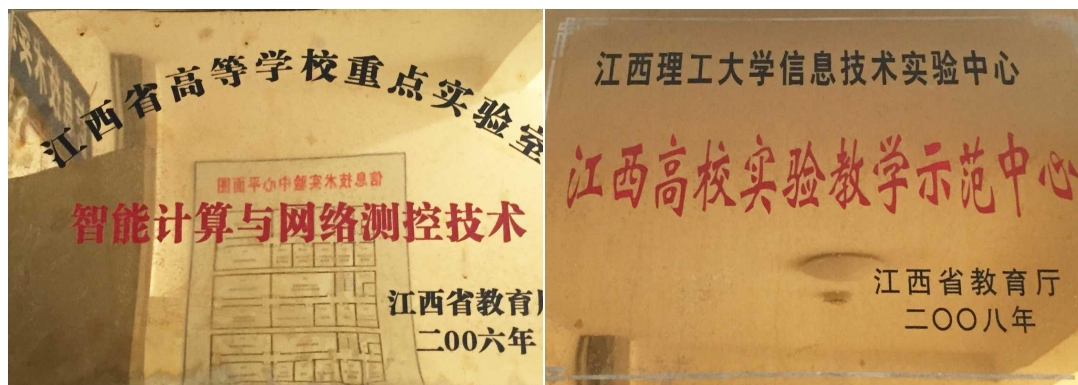 江西省高等学校重点实验室
信息技术实验中心平面图
智能计算与网络测控技术
江西省教育厅
二00六年
江西理工大学信息技术实验中心
江西高校实验教学示范中心
江西省教育厅
二〇〇八年